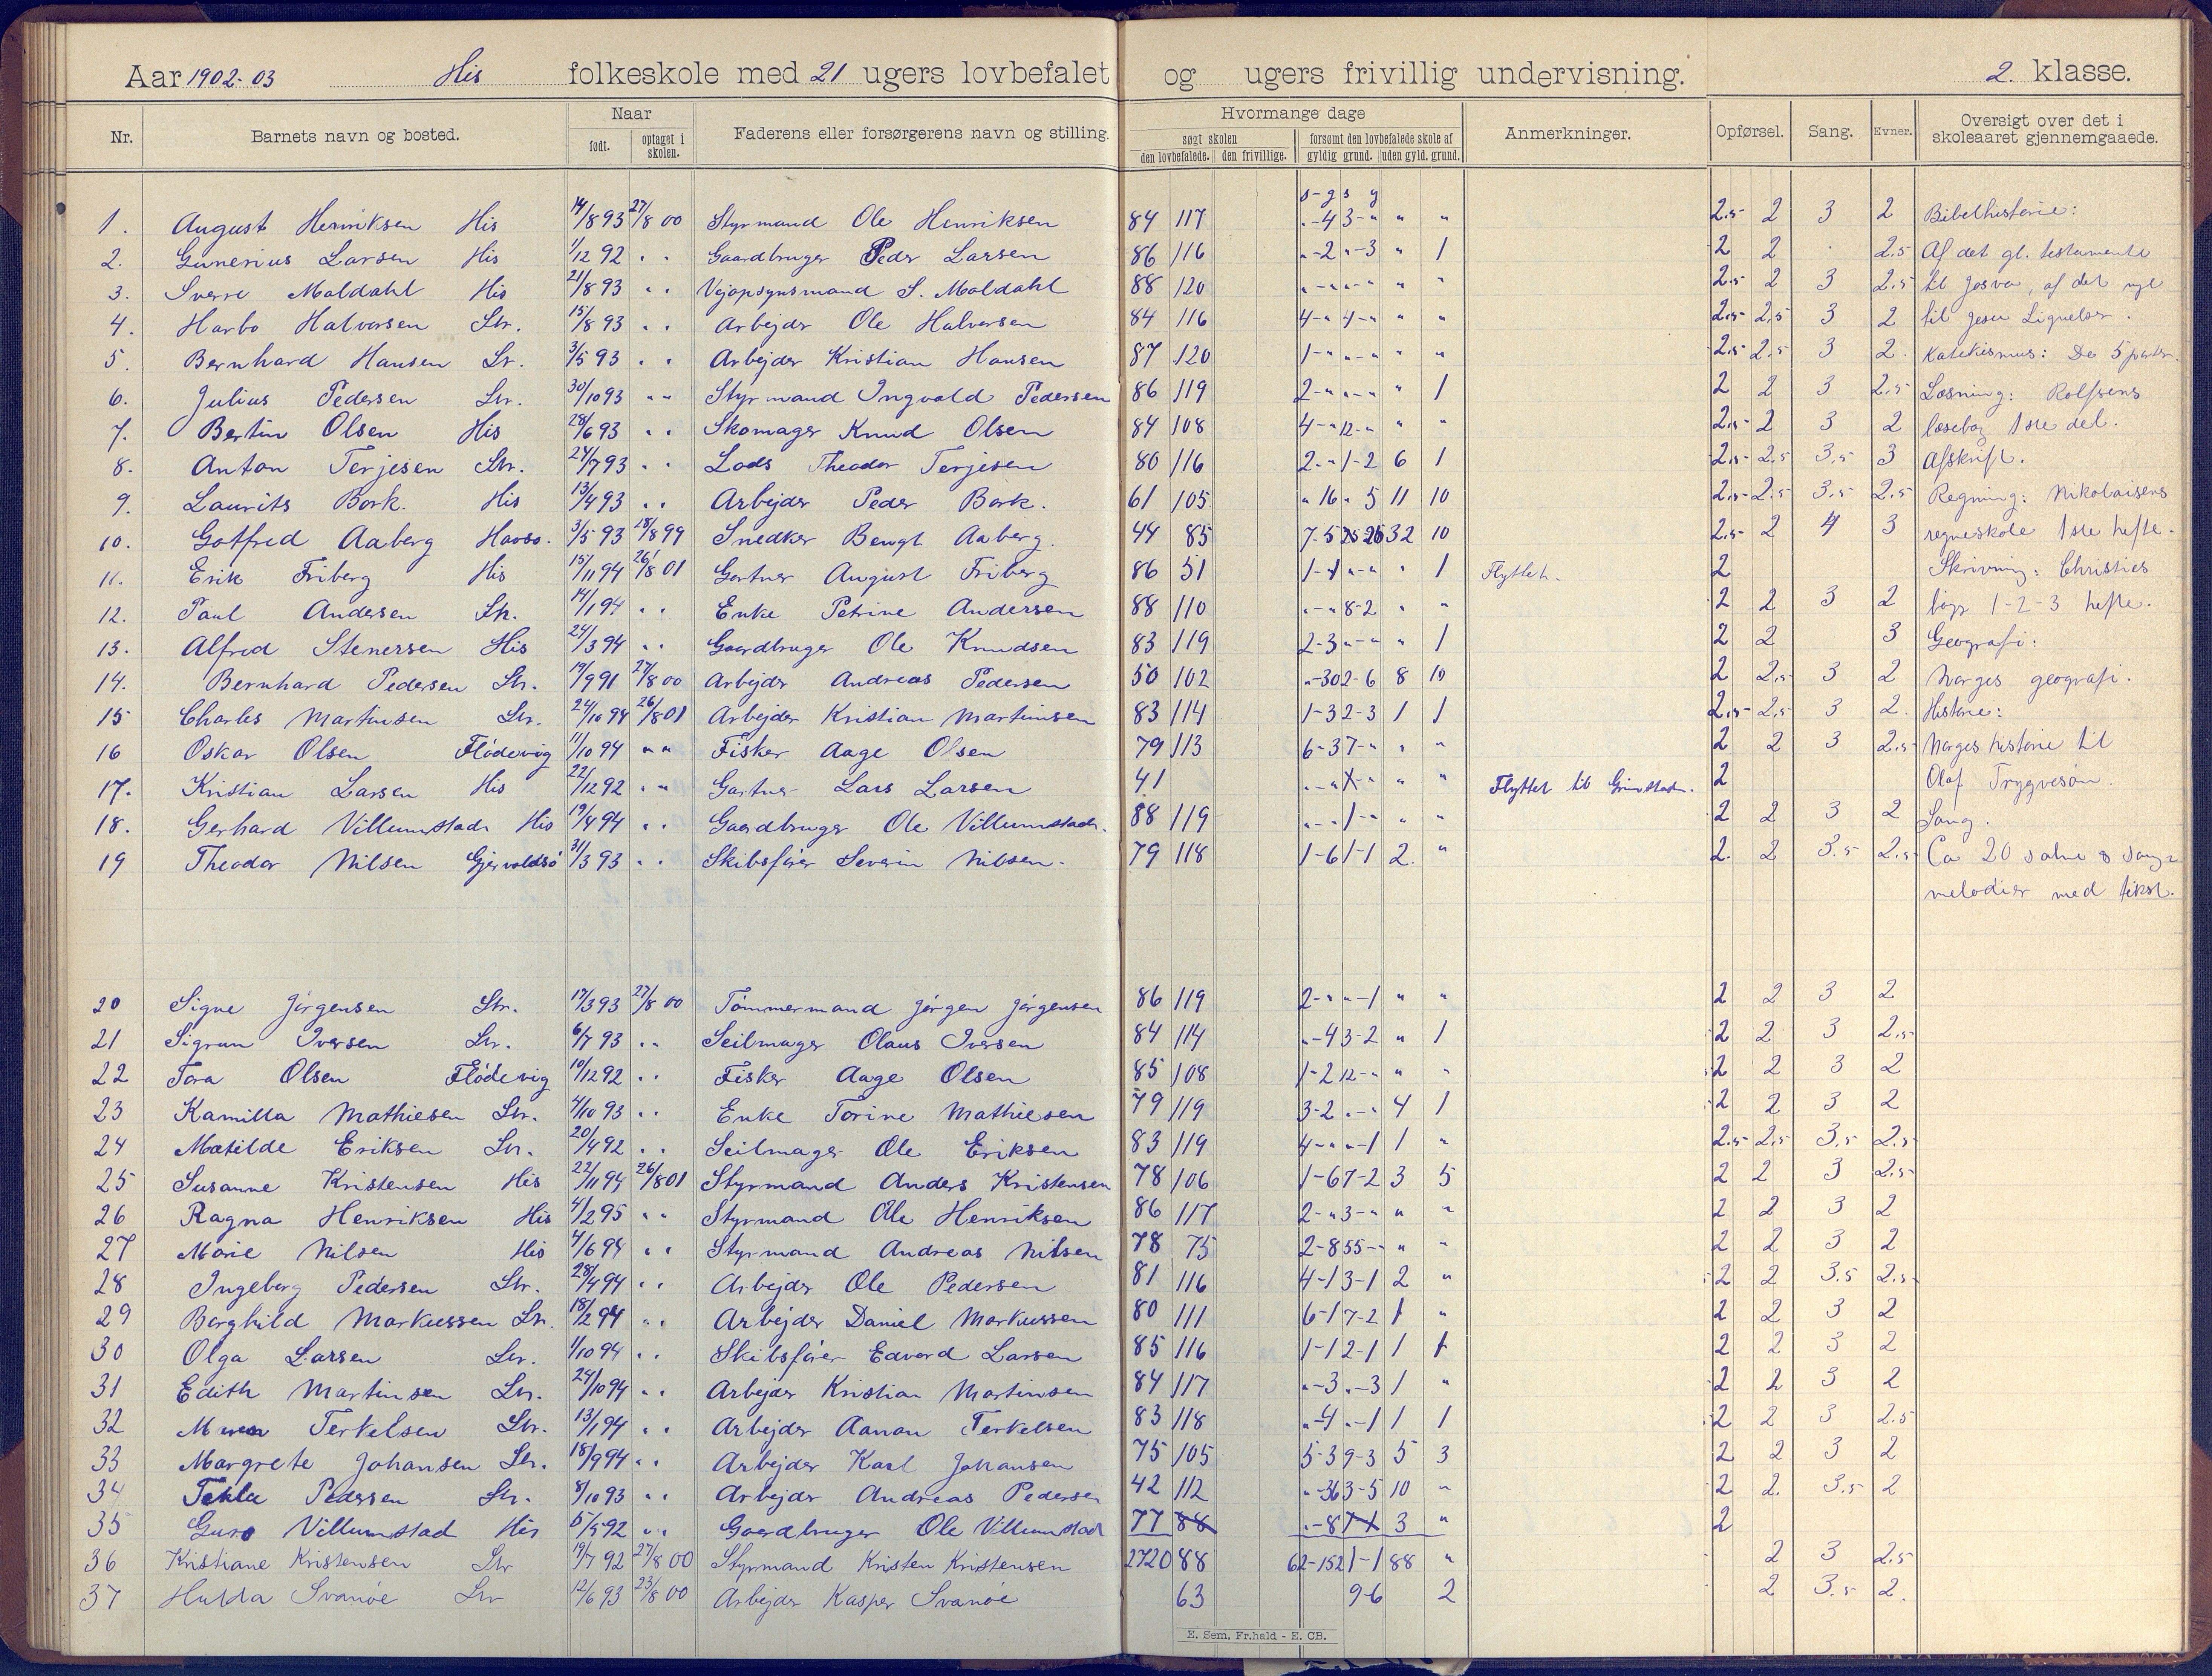 Aar 1902-03 His folkeskole med 21 ugers lovbefalet og ugers frivillig undervisning. 2. klasse.
Nr. Barnets navn og bosted. Naar født. optaget i skolen. Faderens eller forsørgerens navn og stilling. Hvormange dage søgt skolen den lovbefalede. den frivillige. forsømt den lovbefalede skole af gyldig grund. uden gyld. grund. Anmerkninger. Opførsel. Sang. Evner. Oversigt over det i skoleaaret gjennemgaaede.
s-g s g
1. August Henriksen His 14/8 93 27/8 00 Styrmand Ole Henriksen 84 117 „-4 3-„ „ „ 2.5 2 3 2 Bibelhistorie:
2. Gunerius Larsen His 1/12 92 „ „ Gaardbruger Peder Larsen 86 116 „-2 „-3 „ 1 2 2 2.5 Af det gl. testamente
3. Sverre Moldahl His 21/8 93 „ „ Vejopsynsmand S. Moldahl 88 120 „-„ „-„ „ „ 2.5 2 3 2.5 til Josva, af det nye
4. Harbo Halvorsen Str. 15/8 93 „ „ Arbejder Ole Halvorsen 84 116 4-„ 4-„ „ „ 2.5 2,5 3 2 til Jesu Lignelser.
5. Bernhard Hansen Str. 3/5 93 „ „ Arbejder Kristian Hansen 87 120 1-„ „-„ „ „ 2.5 2.5 3 2. Katekismus: De 5 parter.
6. Julius Pedersen Str. 30/10 93 „ „ Styrmand Ingvald Pedersen 86 119 2-„ „-„ „ 1 2 2 3 2.5 Læsning: Rolfsens
7. Bertin Olsen His 28/6 93 „ „ Skomager Knud Olsen 84 108 4-„ 12-„ „ „ 2.5 2 3 2 læsebog 1ste del.
8. Anton Terjesen Str. 24/7 93 „ „ Lods Theodor Terjesen 80 116 2-„ 1-2 6 1 2.5 2.5 3.5 3 Afskrift.
9. Laurits Bork. His 13/4 93 „ „ Arbejder Peder Bork. 61 105 „ 16 „ 5 11 10 2.5 2.5 3.5 2.5 Regning: Nikolaisens
10. Gotfred Aaberg Havsø. 3/5 93 18/8 99 Snedker Bengt Aaberg. 44 85 7-5 32 10 2.5 2 4 3 regneskole 1ste hefte.
11. Erik Friberg His 15/11 94 26/8 01 Gartner August Friberg 86 51 1-1 „-„ „ 1 Flyttet. 2 Skrivning: Christies
12. Paul Andersen Str. 14/1 94 „ „ Enke Petrine Andersen 88 110 „-„ 8-2 „ „ 2 2 3 2 bøger 1-2-3 hefte.
13. Alfred Stenersen His 24/3 94 „ „ Gaardbruger Ole Knudsen 83 119 2-3 „-„ „ 1 2 2 3 Geografi:
14. Bernhard Pedersen Str. 19/9 91 27/8 00 Arbejder Andreas Pedersen 50 102 „-30 2-6 8 10 2 2.5 3 2 Norges geografi.
15 Charles Martinsen Str. 24/10 94 26/8 01 Arbejder Kristian Martinsen 83 114 1-3 2-3 1 1 2.5 2.5 3 2. Historie:
16 Oskar Olsen Flödevig 11/10 94 „ „ Fisker Aage Olsen 79 113 6-3 7-„ „ „ 2 2 3 2.5 Norges historie til
17. Kristian Larsen His 22/12 92 „ „ Gartner Lars Larsen 41 „ „ Flyttet til Grimstad. 2 Olaf Trygvesøn.
18. Gerhard Villumstad His 19/4 94 „ „ Gaardbruger Ole Villumstad. 88 119 „-„ 1-„ „ „ 2 2 3 2 Sang.
19 Theodor Nilsen Gjervoldsö 31/3 93 „ „ Skibsfører Severin Nilsen. 79 118 1-6 1-1 2. „ 2. 2 3.5 2.5 Ca 20 salme & sang-
melodier med tekst.
20 Signe Jörgensen Str. 17/3 93 27/8 00 Tömmermand Jörgen Jörgensen 86 119 2-„ „-1 „ „ 2 2 3 2
21 Sigrun Iversen Str. 6/7 93 „ „ Seilmager Olaus Iversen 84 114 „-4 3-2 „ 1 2 2 3 2.5
22 Tora Olsen Flödevig 10/12 92 „ „ Fisker Aage Olsen 85 108 1-2 12-„ „ „ 2 2 3 2
23 Kamilla Mathiesen Str. 4/10 93 „ „ Enke Torine Mathiesen 79 119 3-2 „-„ 4 1 2 2 3 2
24 Matilde Eriksen Str. 20/4 92 „ „ Seilmager Ole Eriksen 83 119 4-„ „-1 1 „ 2.5 2,5 3,5 2.5
25 Susanne Kristensen His 22/11 94 26/8 01 Styrmand Anders Kristensen 78 106 1-6 7-2 3 5 2 2 3 2.5
26 Ragna Henriksen His 4/2 95 „ „ Styrmand Ole Henriksen 86 117 2-„ 3-„ „ „ 2 2 3 2
27 Marie Nilsen His 4/6 94 „ „ Styrmand Andreas Nilsen 78 75 2-8 55-„ „ „ 2 2 3 2
28 Ingeborg Pedersen Str. 28/4 94 „ „ Arbejder Ole Pedersen 81 116 4-1 3-1 2 „ 2 2 3.5 2.5
29 Borghild Markussen Str. 18/2 94 „ „ Arbejder Daniel Markussen 80 111 6-1 7-2 1 „ 2 2 3 2
30 Olga Larsen Str. 1/10 94 „ „ Skibsfører Edvard Larsen 85 116 1-1 2-1 1 1 2 2 3 2
31 Edith Martinsen Str. 24/10 94 „ „ Arbejder Kristian Martinsen 84 117 „-3 „-3 1 „ 2 2 3 2
32 Terkelsen Str. 13/1 94 „ „ Arbejder Aanon Terkelsen 83 118 „-4 „-1 1 1 2 2 3 2.5
33 Margrete Johansen Str. 18/9 94 „ „ Arbejder Karl Johansen 75 105 5-3 9-3 5 3 2 2 3 2
34 Tekla Pedersen Str. 8/10 93 „ „ Arbejder Andreas Pedersen 42 112 „-36 3-5 10 „ 2 2. 3.5 2
35 Guro Villumstad His 5/5 92 „ „ Gaardbruger Ole Villumstad 77 88 „-8 3 „ 2
36 Kristiane Kristensen Str 19/7 92 27/8 00 Styrmand Kristen Kristensen 2720 88 62-152 1-1 88 „ 2 3 2.5
37 Hulda Svanöe Str 12/6 93 23/8 00 Arbejder Kasper Svanöe 63 9-6 2 2 3.5 2.
E. Sem, Fr.hald - E. CB.